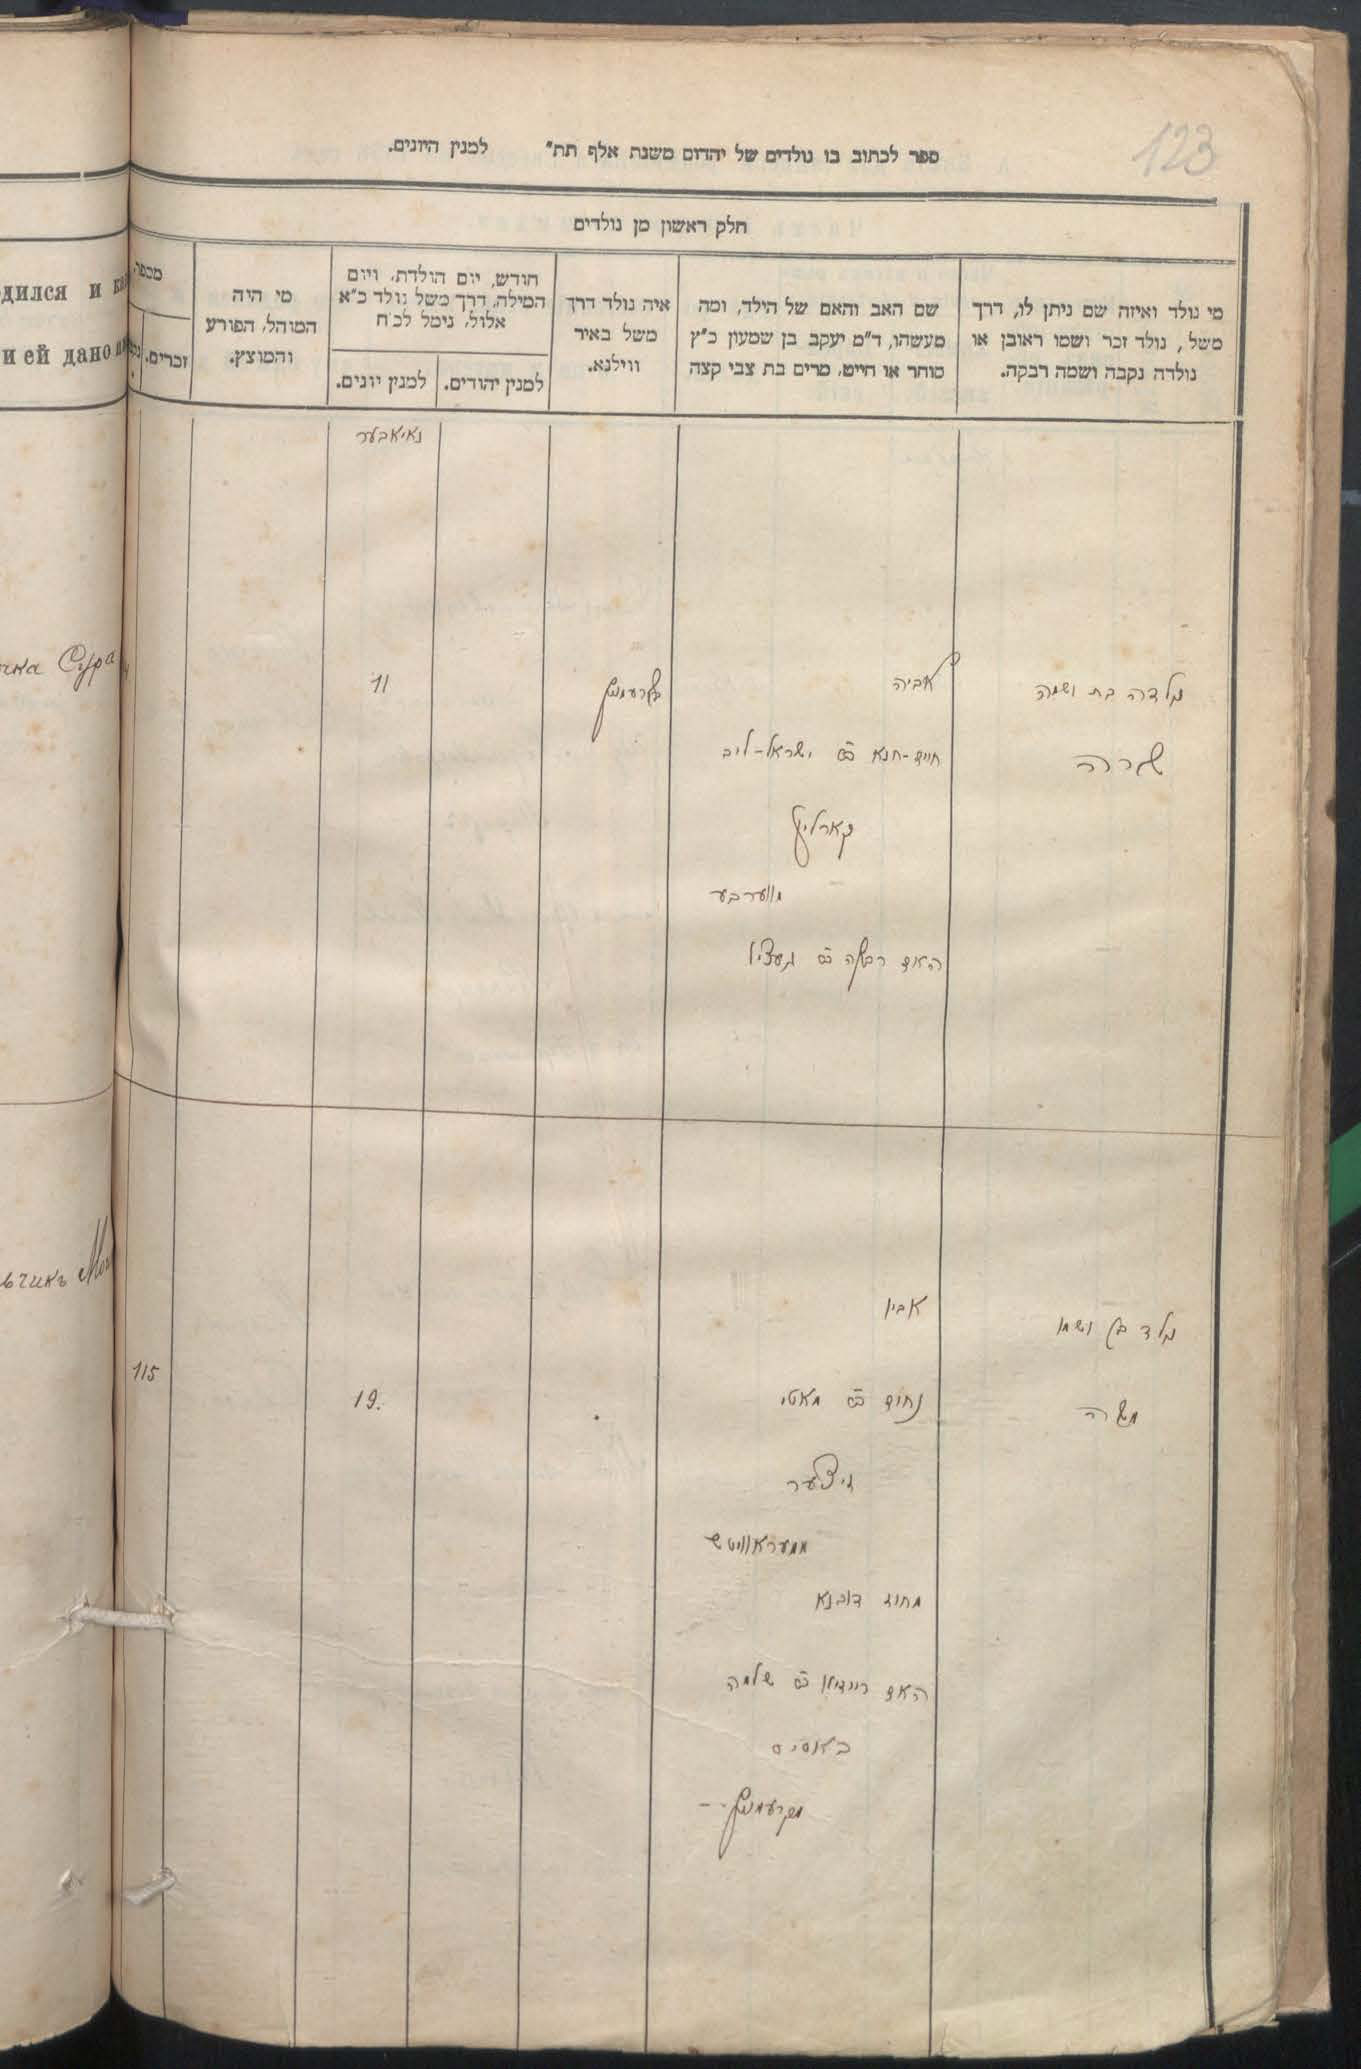 123
ספר לכתוב בו נולדים של יהדום משנת אלף תת״ למנין היונים.
חלק ראשון מן נולדים
מי נולד ואיזה שם ניתן לו, דרך
משל, נולד זכר ושמו ראובן או
נולדה נקבה ושמה רבקה.
שם האב והאם של הילד, ומה
מעשהו, ד״מ יעקב בן שמעון כ״ץ
סוחר או חייט, מרים בת צבי קצה
איה נולד דרך
משל באיר
ווילנא.
חודש, יום הולדת, ויום
המילה, דרך משל נולד כ״א
אלול, נימל לכ״ח
למנין יהודים.
למנין יונים.
מי היה
המוהל, הפורע
והמוצץ.
מספר
זכרים.
дился и
и ей дано
נאיאבער
נולדה בת ושמה
שרה
אביה
חיים-חנא ישראל-ליב
קארליק
מווערבע
האם רבקה געציל
קרעמניץ
11
чка Сура
נולד בן ושמו
משה
אביו
נחום מאטי
מחוז דובנא
האם שלמה
מקרעמניץ
19.
115
ьчикъ